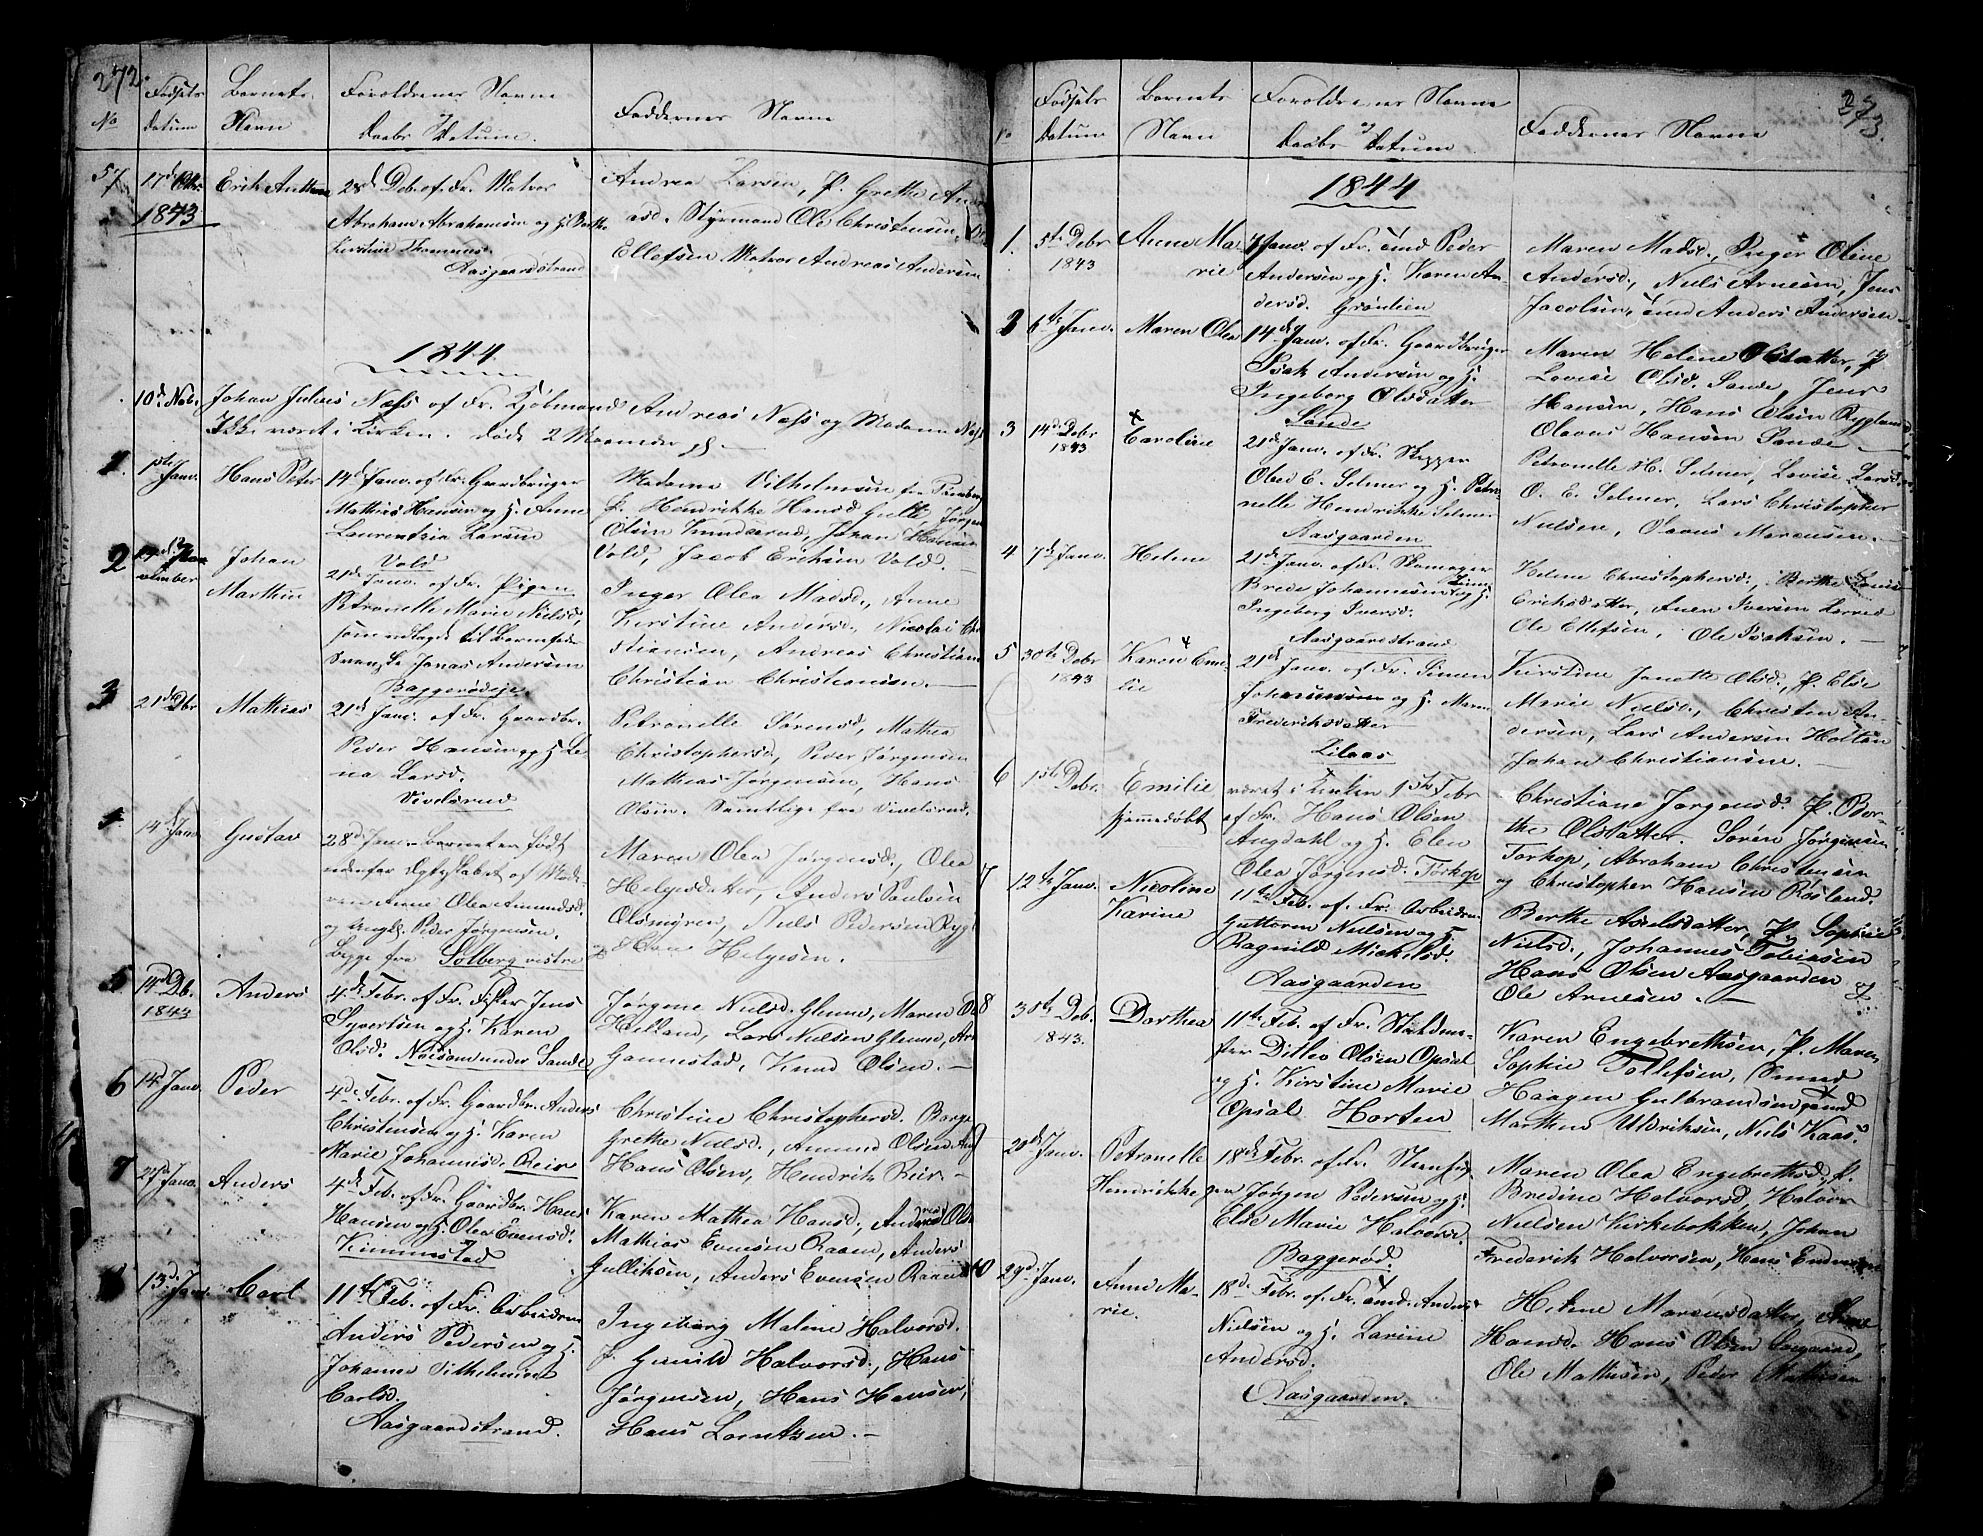 272.
No
Fødsels
datum
Barnets
Navn
Forældrenes Navne
og
Daabs Datum.
Faddernes Navne
57
1843
Erik Anthon
28d Debr. af Fr. Matros
Abraham Abrahamsen og H. Berthe
Kirstine
Aasgaardstrand
Andrea Larsen, P. Grethe
Styrmand Ole Christensen,
Ellefsen Matros Andreas Andersen
1844
10d Nob.
Johan Julius Næss af Fr. Kjøbmand Andreas Næss og Madame Næss
Ikke været i Kirken. døde 2 Maaneder gl.
1.
1ste Janv.
Hans Peter
14d Janv. af Fr. Gaardbruger
Mathias Hansen og H. Anne
Laurentzia Larsen
Vold
Madame Vilhelmsen fra
P. Hendrikke Hansd.
Olsen Johan Hansen
Vold, Jacob Eriksen Vold.
2
Johan
Marthin
21de Janv. af Fr. Pigen
Petronelle Marie Nielsd.,
som udlagde til Barnefader
Svenske Jonas Andersen
Baggerødeje
Inger Olea Madsd., Anne
Kirstine Andersd. Nicolai
Andreas Christian
Christian Christiansen.
3
21de Dbr
Mathias
21d Janv. af Fr. Gaardbr.
Peder Hansen og H.
Larsd.
Petronelle Sørensd, Mathea
Christophersd, Peder Jørgensen
Mathias Jørgensen, Hans
Olsen. Samtlige fra
4
14d Janv.
Gustav
28d Janv. Barnet er født
udenfor Ægteskabet af
Anne Olea Amundsd.
og Ungk. Peder Jørgensen.
begge fra Solberg vestre
Maren Olea Jørgensd, Olea
Helgesdatter, Anders Paulsen
Olsmyren, Niels Pedersen
og Hans Helgesen.
5
14d Db.
1843
Anders
4de Febr. af Fr. Fisker Jens
Syvertsen og H. Karen
Olsd. under Sande
Jørgine Nielsd. Glenne, Maren
Helland, Lars Nielsen Glenne,
Gannestad, Knud Olsen.
6
14d Janv.
Peder
4de Febr. af Fr. Gaardbr. Anders
Christensen og H. Karen
Marie Johannesd. Reir
Christine Christophersd.
Grethe Nielsd., Amund Olsen
Hans Olsen, Hendrik Reir
7
27d Janv.
Anders
4de Feb. af Fr. Gaardbr. Hans
Hansen og H. Olea Evensd.
Kimmestad
Karen Mathea Hansd.,
Mathias Evensen Raaen, Anders
Gulliksen, Anders Evensen Raaen
8
13d Janv.
Carl
11te Feb. af Fr. Arbeidsm.
Anders Pedersen og H.
Johanne
Carlsd.
Aasgaardstrand.
Ingeborg Malene Halvorsd.
P. Gunild Halvorsd., Hans
Jørgensen, Hans Hansen,
Hans Lorntzen.
273.
No
Fødsels
Datum
Barnets
Navn
Forældrenes Navne
og
Daabs Datum
Faddernes Navne
1844
1.
5te Debr
1843
Anne Ma-
rie
7 Janv. af Fr. Smd Peder
Andersen og H. Karen An-
dersd. Grønlien
Maren Madsd., Inger Oline
Andersd., Niels Arnesen, Jens
Jacobsen, Smd Anders Andersen
2
6te Janv.
Maren Olea
14de Janv. af Fr. Gaardbruger
Isak Andersen og H.
Ingeborg Olsdatter
Sande
Maren Helene Olsdatter, P
Lovise Olsd. Sande, Jens
Hansen, Hans Olsen Rygland
Olaves Hansen Sande
3
14d Debr
1843
Caroline
21de Janv. af Fr. Skipper
Oled E. Selmer og H. Petro-
nelle Hendrikke Selmer
Aasgaarden
Petronelle H. Selmer, Lovise
O. E. Selmer, Lars Christopher
Nielsen, Olaves Marcusen.
4
7de Janv.
Helene
21de Janv. af Fr. Skomager
Brede Johannesen og H.
Ingeborg Iversd.
Aasgaardstrand
Helene Christophersd., Berthe
Eriksdatter, Iversen
Ole Ellefsen, Ole Isaksen.
5
30te Debr
1843
Karen Emi-
lie
21de Janv. af Fr. Simen
Johannessen og H. Maren
Frederiksdatter
Lilaas
Kirstine Janette Olsd., P. Else
Marie Nielsd., Christen An-
dersen, Lars Andersen Holtan
Johan Christiansen.
6
1ste Debr.
Emilie
hjemmedøbt
været i Kirken Febr
af Fr. Hans Olsen
Augdahl og H. Elen
Olea Jørgensd. Torkop
Christiane Jørgensd. P. Ber-
the Olsdatter. Søren Jørgensen
Torkop, Abraham Christensen
og Christopher Hansen Røsland.
7
12te Janv.
Nicoline
Karine
11te Feb. af Fr. Arbeidsm.
Guttorm Nielsen og H
Ragnild Mickelsd.
Aasgaarden
Berthe Axelsdatter, P Sophie
Nielsd., Johannes Tobiasen
Hans Olsen Aasgaarden
Ole Arnesen.
8
30te Deb.
1843.
Dorthea
11te Feb. af Fr.
Ditlev Olsen Opsal
og H. Kirstine Marie
Opsal Horten
Karen Engebrethsen, P. Maren
Sophie Tollefsen, Smed
Haagen Gulbrandsen
Marthin Uldriksen, Niels Kaas.
9
20de Janv.
Petronelle
Hendrikke
18de Febr. af Fr.
Jørgen Pedersen og H.
Else Marie Halvorsd.
Baggerød.
Maren Olea Engebrethsd., P.
Bredine Halvorsd, Halvor
Nielsen Kirkebakken, Johan
Frederik Halvorsen, Hans
10
29d Janv.
Anne Ma-
rie.
18d Febr. af Fr. Smd. Anders
Nielsen og H. Larine
Andersd.
Aasgaarden.
Helene Marcusdatter, Anne
Hansd. Hans Olsen
Ole Mathisen, Peder Mathisen